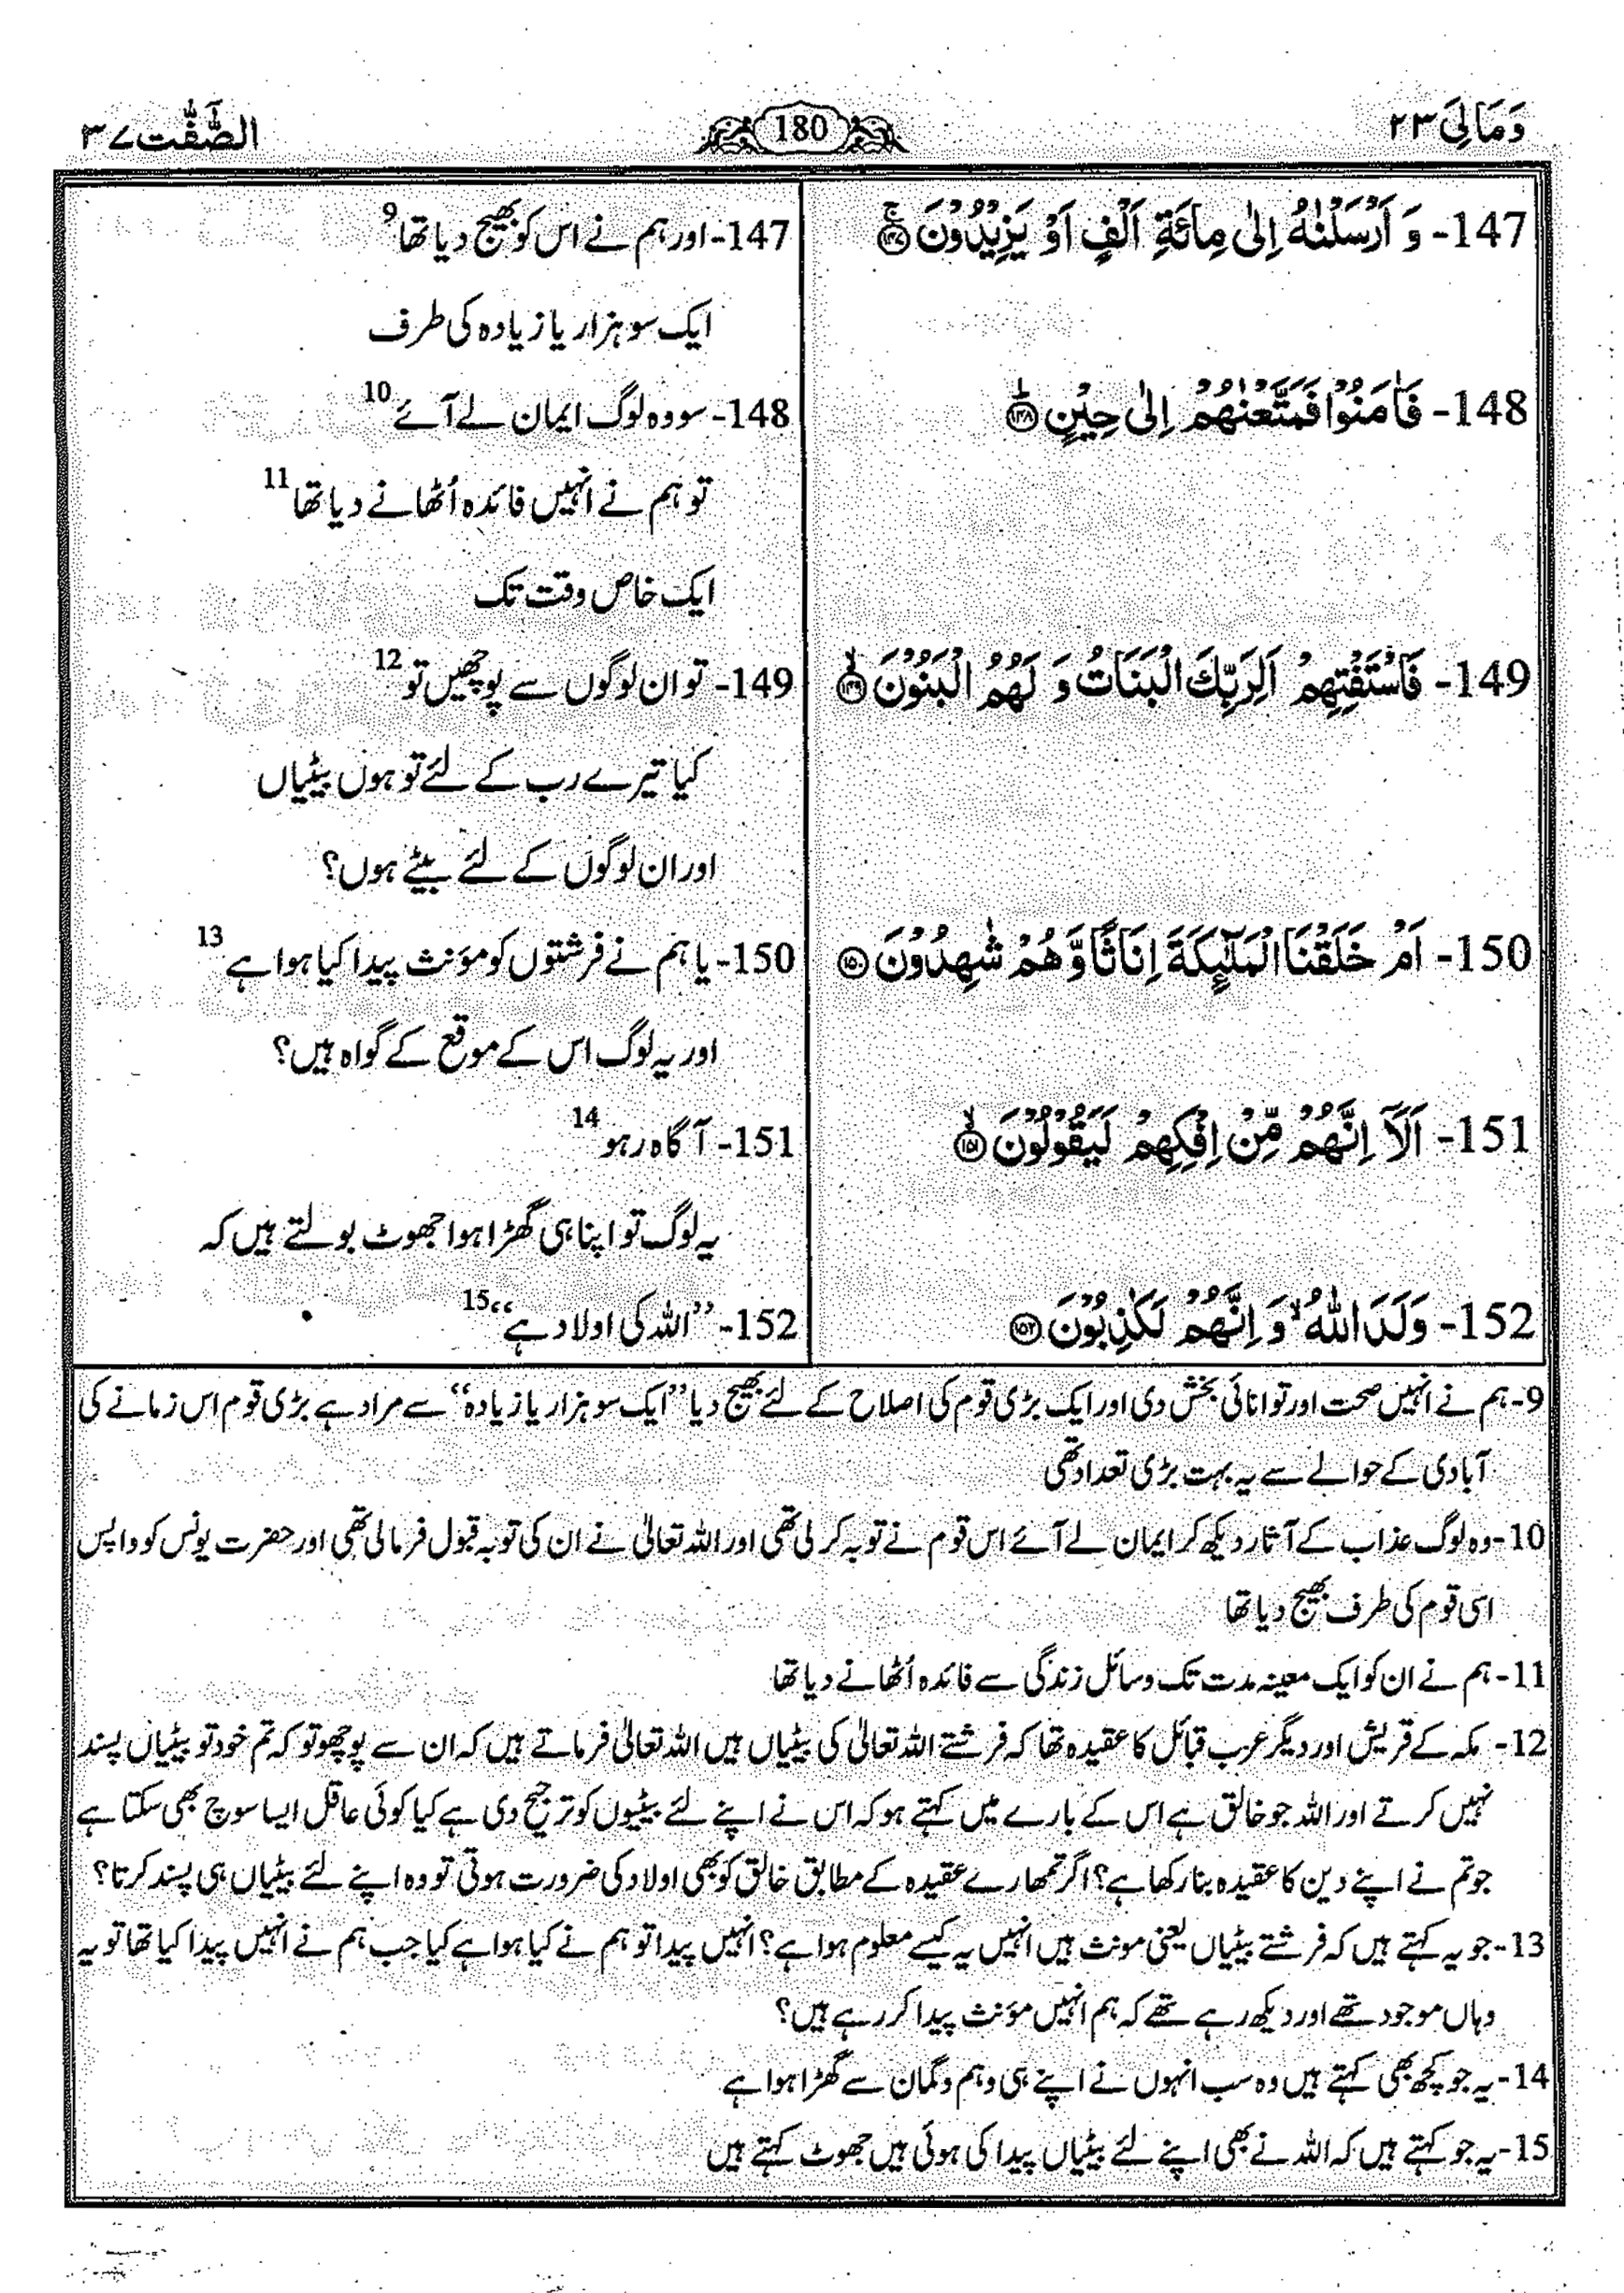 وَمَالِیَ ۲۳
180
الصّٰٓفّٰت ۳۷
147- وَ اَرْسَلْنٰهُ اِلٰى مِائَةِ اَلْفٍ اَوْ يَزِيْدُوْنَ ۚ﴿۱۴۷﴾
147- اور ہم نے اس کو بھیج دیا تھا 9
ایک سو ہزار یا زیادہ کی طرف
148- فَاٰمَنُوْا فَمَتَّعْنٰهُمْ اِلٰى حِيْنٍ ؕ﴿۱۴۸﴾
148- سو وہ لوگ ایمان لے آئے 10
تو ہم نے انہیں فائدہ اُٹھانے دیا تھا 11
ایک خاص وقت تک
149- فَاسْتَفْتِهِمْ اَلِرَبِّكَ الْبَنَاتُ وَ لَهُمُ الْبَنُوْنَ ۙ﴿۱۴۹﴾
149- تو ان لوگوں سے پوچھیں تو 12
کیا تیرے رب کے لئے تو ہوں بیٹیاں
اور ان لوگوں کے لئے بیٹے ہوں؟
150- اَمْ خَلَقْنَا الْمَلٰٓىِٕكَةَ اِنَاثًا وَّ هُمْ شٰهِدُوْنَ ﴿۱۵۰﴾
150- یا ہم نے فرشتوں کو مؤنث پیدا کیا ہوا ہے 13
اور یہ لوگ اس کے موقع کے گواہ ہیں؟
151- اَلَاۤ اِنَّهُمْ مِّنْ اِفْكِهِمْ لَيَقُوْلُوْنَ ۙ﴿۱۵۱﴾
151- آگاہ رہو 14
یہ لوگ تو اپنا ہی گھڑا ہوا جھوٹ بولتے ہیں کہ
152- وَلَدَ اللّٰهُ ۙ وَ اِنَّهُمْ لَكٰذِبُوْنَ ﴿۱۵۲﴾
152- ”اللہ کی اولاد ہے“ 15
9- ہم نے انہیں صحت اور توانائی بخش دی اور ایک بڑی قوم کی اصلاح کے لئے بھیج دیا ”ایک سو ہزار یا زیادہ“ سے مراد ہے بڑی قوم اس زمانے کی
آبادی کے حوالے سے یہ بہت بڑی تعداد تھی
10- وہ لوگ عذاب کے آثار دیکھ کر ایمان لے آئے اس قوم نے توبہ کر لی تھی اور اللہ تعالیٰ نے ان کی توبہ قبول فرمالی تھی اور حضرت یونس کو واپس
اسی قوم کی طرف بھیج دیا تھا
11- ہم نے ان کو ایک معینہ مدت تک وسائل زندگی سے فائدہ اُٹھانے دیا تھا
12- مکہ کے قریش اور دیگر عرب قبائل کا عقیدہ تھا کہ فرشتے اللہ تعالیٰ کی بیٹیاں ہیں اللہ تعالیٰ فرماتے ہیں کہ ان سے پوچھو تو کہ تم خود تو بیٹیاں پسند
نہیں کرتے اور اللہ جو خالق ہے اس کے بارے میں کہتے ہو کہ اس نے اپنے لئے بیٹیوں کو ترجیح دی ہے کیا کوئی عاقل ایسا سوچ بھی سکتا ہے
جو تم نے اپنے دین کا عقیدہ بنا رکھا ہے؟ اگر تمھارے عقیدہ کے مطابق خالق کو بھی اولاد کی ضرورت ہوتی تو وہ اپنے لئے بیٹیاں ہی پسند کرتا؟
13- جو یہ کہتے ہیں کہ فرشتے بیٹیاں یعنی مونث ہیں انہیں یہ کیسے معلوم ہوا ہے؟ انہیں پیدا تو ہم نے کیا ہوا ہے کیا جب ہم نے انہیں پیدا کیا تھا تو یہ
وہاں موجود تھے اور دیکھ رہے تھے کہ ہم انہیں مؤنث پیدا کر رہے ہیں؟
14- یہ جو کچھ بھی کہتے ہیں وہ سب انہوں نے اپنے ہی وہم و گمان سے گھڑا ہوا ہے
15- یہ جو کہتے ہیں کہ اللہ نے بھی اپنے لئے بیٹیاں پیدا کی ہوئی ہیں جھوٹ کہتے ہیں